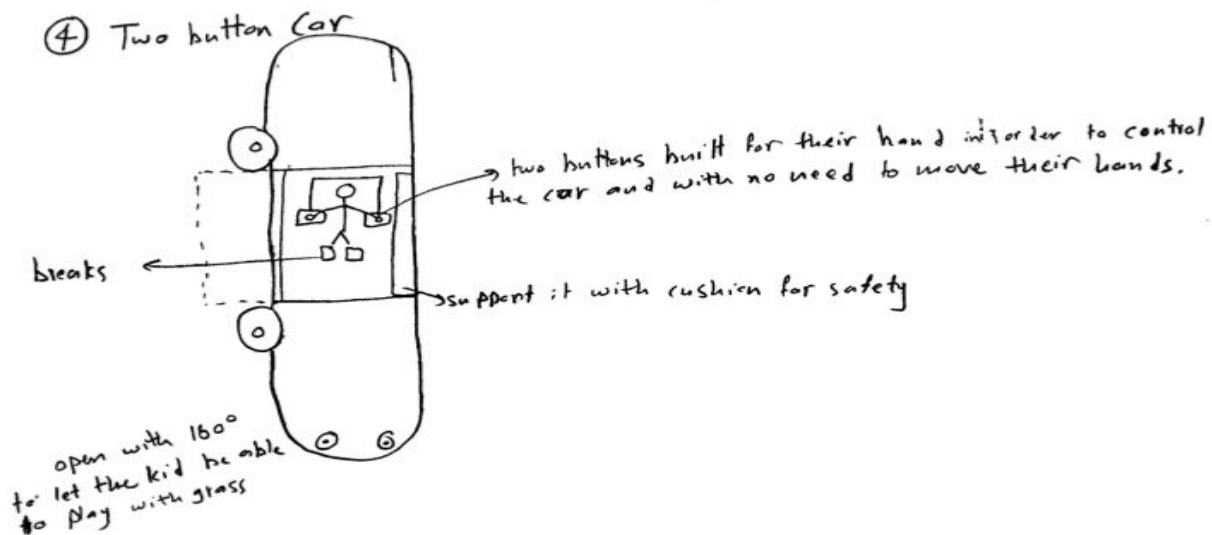 ④ Two button Car
two buttons built for their hand in order to control
the car and with no need to move their hands.
breaks
support it with cushion for safety
open with 180°
to let the kid be able
to play with grass